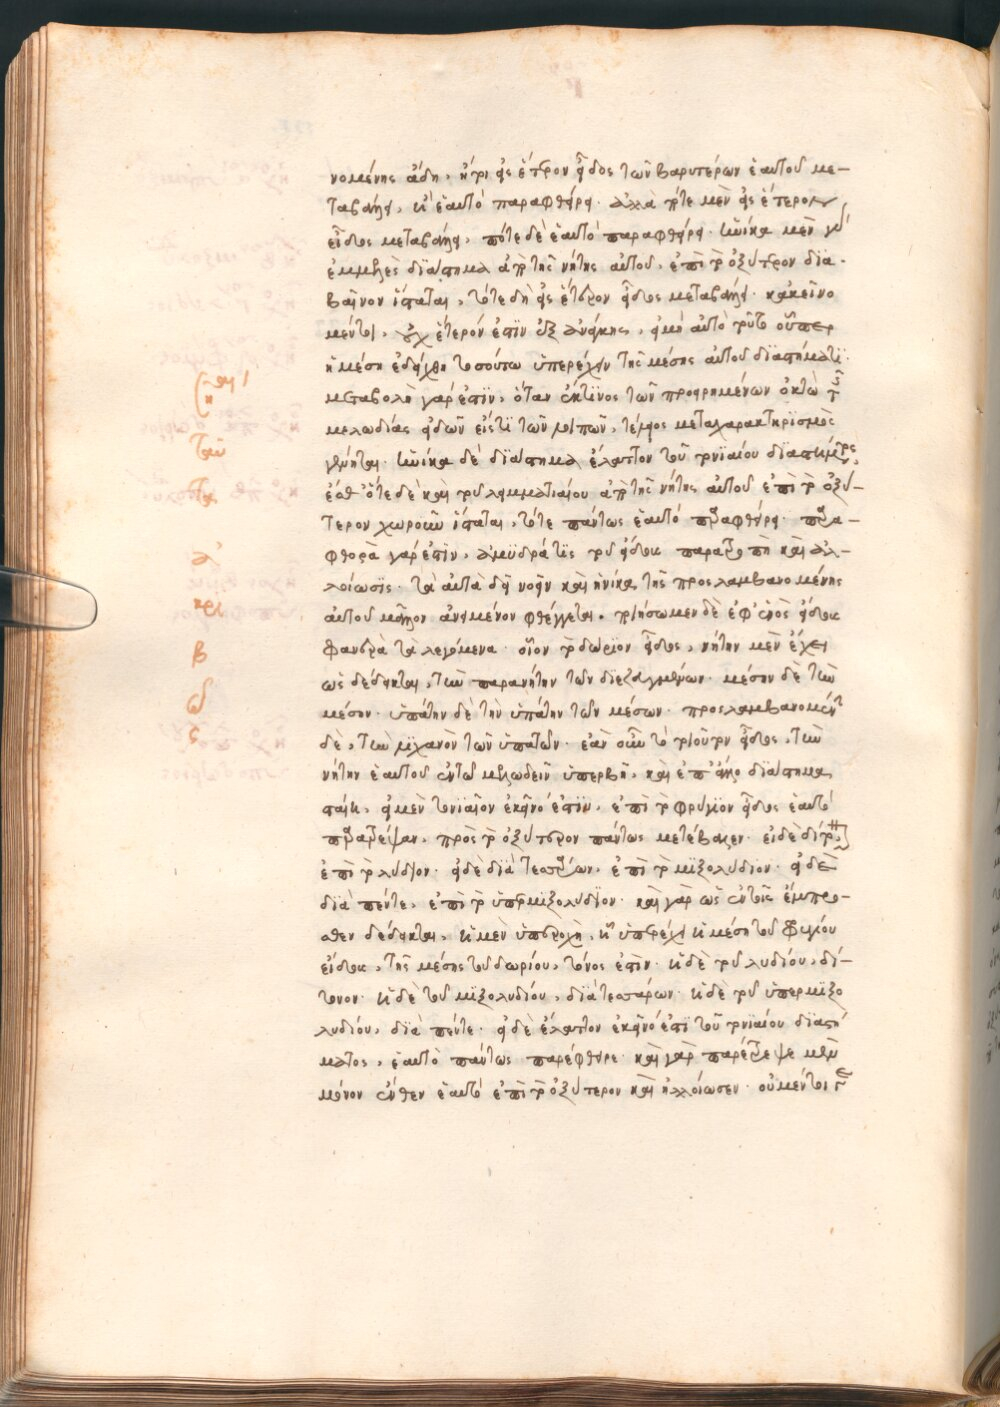 νομένης ᾄδῃ, ἤτοι εἰς ἕτερον εἶδος τῶν βαρυτέρων ἑαυτοῦ με-
ταβάλλει, ἢ ἑαυτὸ παραφθείρει. ἀλλὰ πότε μὲν εἰς ἕτερον
εἶδος μεταβάλλει, πότε δὲ ἑαυτὸ παραφθείρει. ἡνίκα μὲν γὰρ
ἐμμελὲς διάστημα ἀπὸ τῆς νήτης αὐτοῦ, ἐπὶ τὸ ὀξύτερον δια-
βαῖνον ἵσταται, τότε δὴ εἰς ἕτερον εἶδος μεταβάλλει. κἀκεῖνο
μέντοι, οὐχ ἕτερόν ἐστιν ἐξ ἀνάγκης, εἰ μὴ αὐτὸ τοῦτο οὗπερ
ἡ μέση ἐδείχθη τοσούτῳ ὑπερέχειν τῆς μέσης αὐτοῦ διαστήματι.
μεταβολὴ γάρ ἐστιν, ὅταν ἔκ τινος τῶν προειρημένων ὀκτὼ τῆς
μελῳδίας εἰδῶν εἴς τι τῶν λοιπῶν, τέλειος μεταχαρακτηρισμὸς
γένηται. ἡνίκα δὲ διάστημα ἔλαττον τοῦ τονιαίου διαστήματος,
ἔσθ' ὅτε δὲ καὶ τοῦ λειμματιαίου ἀπὸ τῆς νήτης αὐτοῦ ἐπὶ τὸ ὀξύ-
τερον χωροῦν ἵσταται, τότε πάντως ἑαυτὸ παραφθείρει. παρα-
φθορὰ γάρ ἐστιν, ἀμυδρά τις τοῦ εἴδους παρατροπὴ καὶ ἀλ-
λοίωσις. τὰ αὐτὰ δεῖ νοεῖν καὶ ἡνίκα τῆς προσλαμβανομένης
αὐτοῦ μᾶλλον ἀνειμένον φθέγγεται. ποιήσωμεν δὲ ἐφ' ἑνὸς εἴδους
φανερὰ τὰ λεγόμενα. οἷον τὸ δώριον εἶδος, νήτην μὲν ἔχει
ὡς δέδεικται, τὴν παρανήτην τῶν διεζευγμένων. μέσην δὲ τὴν
μέσην. ὑπάτην δὲ τὴν ὑπάτην τῶν μέσων. προσλαμβανομένην
δὲ, τὴν λιχανὸν τῶν ὑπάτων. ἐὰν οὖν τὸ τοιοῦτον εἶδος, τὴν
νήτην ἑαυτοῦ ἐν τῷ μελωδεῖν ὑπερβῇ, καὶ ἐπ' ἄλλο διάστημα
σταίη, εἰ μὲν τονιαῖον ἐκεῖνό ἐστιν, ἐπὶ τὸ φρύγιον εἶδος ἑαυτὸ
παρατρέψαν, πρὸς τὸ ὀξύτερον πάντως μετέβαλεν. εἰ δὲ δίτονον,
ἐπὶ τὸ λύδιον. εἰ δὲ διὰ τεσσάρων, ἐπὶ τὸ μιξολύδιον. εἰ δὲ
διὰ πέντε, ἐπὶ τὸ ὑπερμιξολύδιον. καὶ γὰρ ὡς ἐν τοῖς ἔμπρο-
σθεν δέδεικται, ἡ μὲν ὑπεροχὴ, ᾗ ὑπερέχει ἡ μέση τοῦ φρυγίου
εἴδους, τῆς μέσης τοῦ δωρίου, τόνος ἐστίν. ἡ δὲ τοῦ λυδίου, δί-
τονον. ἡ δὲ τοῦ μιξολυδίου, διὰ τεσσάρων. ἡ δὲ τοῦ ὑπερμιξο
λυδίου, διὰ πέντε. εἰ δὲ ἔλαττον ἐκεῖνό ἐστι τοῦ τονιαίου διαστή
ματος, ἑαυτὸ πάντως παρέφθειρε. καὶ γὰρ παρέτρεψε μὲν
μόνον ἔνθεν ἑαυτὸ ἐπὶ τὸ ὀξύτερον καὶ ἠλλοίωσεν. οὐ μέντοι γε